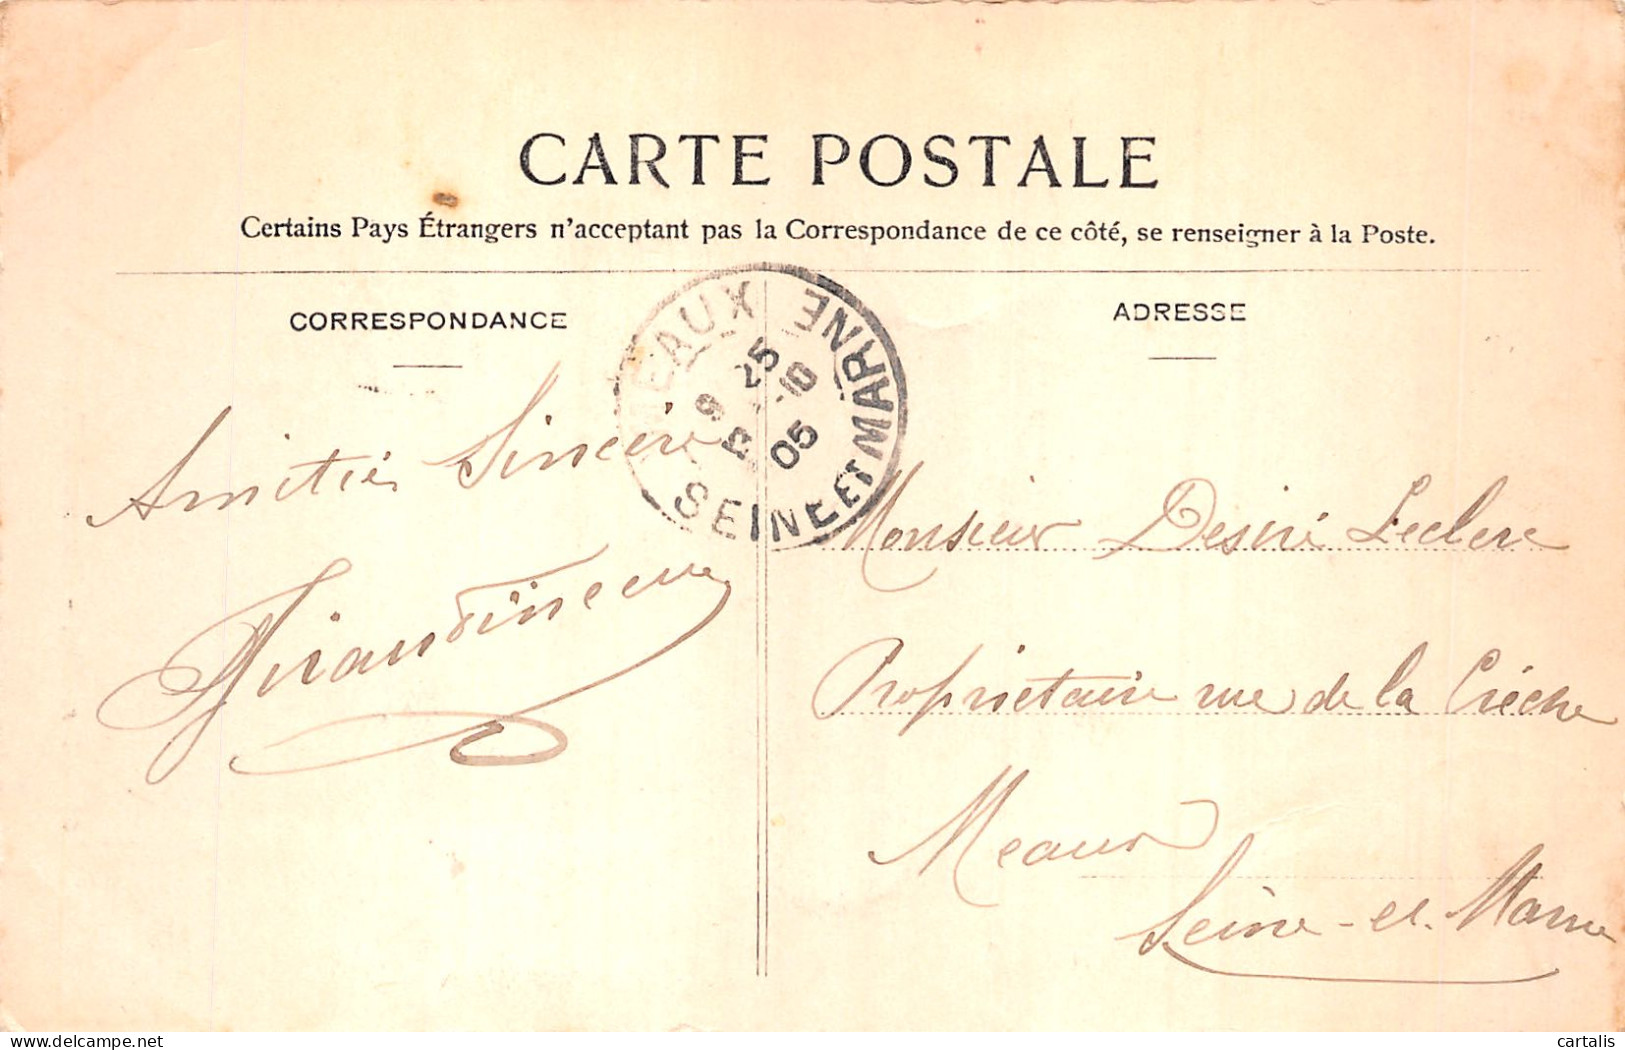 CARTE POSTALE
Certains Pays Étrangers n'acceptant pas la Correspondance de ce côté, se renseigner à la Poste.
CORRESPONDANCE
ADRESSE
MEAUX
SEINE ET MARNE
25
-10
05
Amitiés Sincère
Monsieur Desiré Leclerc
Propriétaire rue de la Crèche
Meaux
Seine-et-Marne
cartalis
delcampe.net